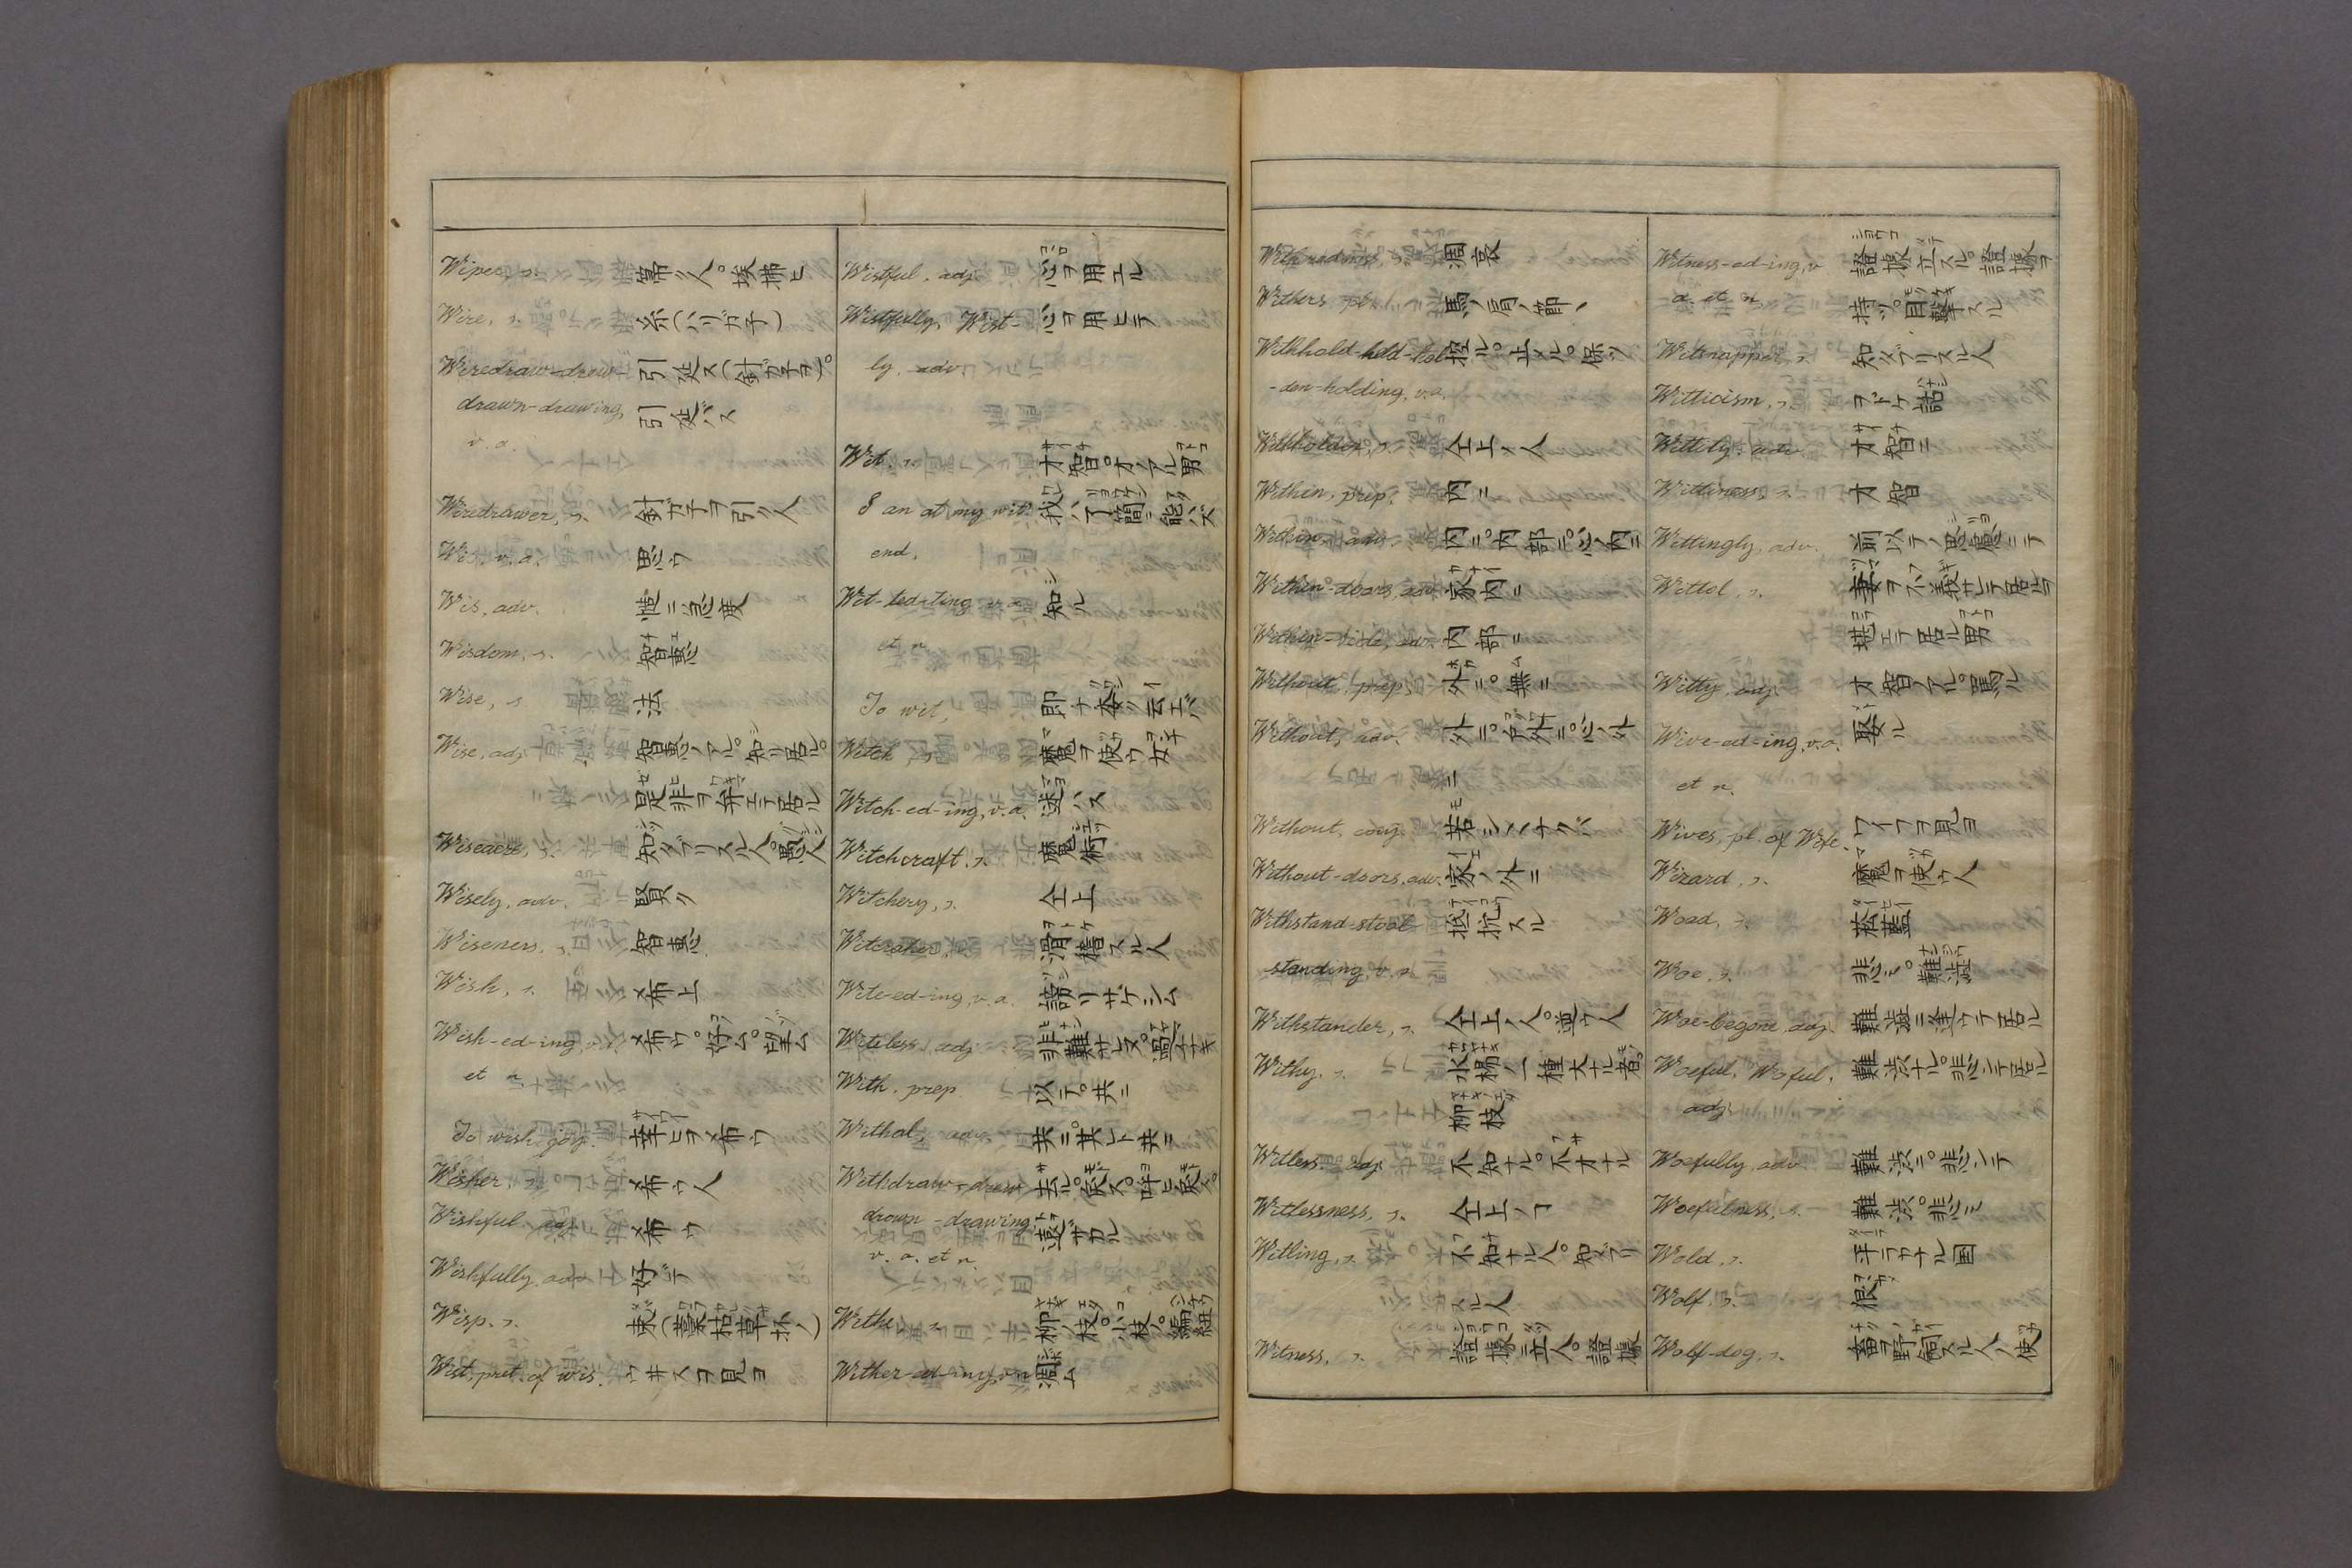 Wiper, s. 箒ク人。埃拂ヒ
Wire, s. 糸(ハリガチ)
Wiredraw-drew- 引延ス(針ガチヲ)。
drawn-drawing, 引延バス
v. a.
Wiredrawer, s. 針ガチヲ引ク人
Wis, v. a. 思ウ
Wis, adv. 慥ニ急度
Wisdom, s. 智恵
Wise, s. 法
Wise, adj. 智恵ノアル。知リ居ル。
是非ヲ弁エテ居ル
Wiseacre, s. 知ッタブリスル人。愚人
Wisely, adv. 賢ク
Wiseness, s. 智恵
Wish, s. 希上
Wish-ed-ing, v. a. 希ウ。好ム。望ム
et n.
To wish joy. 幸ヒヲ希ウ
Wisher, s. 希ウ人
Wishful, adj. 希ウ
Wishfully, adv. 好ンデ
Wisp, s. 束(藁枯草抔ノ)
Wist, pret. of wis. ウ井スヲ見ヨ
Wistful, adj. 心ヲ用エル
Wistfully, Wist- 心ヲ用ヒテ
ly, adv.
Wit, s. 才智。才ノアル男
I an at my wit. 我ハ了簡ニ能ハズ
end,
Wit-ted-ting, v. a. 知ル
et n.
To wit, 即ナ委ク云エバ
Witch, s. 魔ヲ使ウ女
Witch-ed-ing, v. a. 迷ハス
Witchcraft, s. 魔術
Witchery, s. 仝上
Witcraker, 滑稽スル人
Wite-ed-ing, v. a. 謗リサゲシム
Witeless, adj. 非難サレヌ。過チナキ
With, prep. 以テ。共ニ
Withal, adv. 共ニ。其レト共ニ
Withdraw-drew 去ル。戻ス。呼ヒ戻ス。
drown-drawing, 遠ザカル
v. a. et n.
Withe, s. 柳ノ枝。小枝。編紐
Wither-ed-ing, v. n. 凋ム
Witheredness, s. 凋衰
Withers, pl. 馬ノ肩ノ節、
Withhold-held-hol 控ル。止メル。保ツ
-den-holding, v. a.
Withholder, s. 仝上ノ人
Within, prep. 内ニ
Within, adv. 内ニ。内部ニ。心ノ内ニ
Within-doors, adv. 家内ニ
Within-side, adv. 内部ニ
Without, prep. 外ニ。無ニ
Without, adv. 外ニ。戸外ニ。心ノ外
ニ
Without, conj. 若シヘナクバ
Without-doors, adv. 家ノ外ニ
Withstand-stood 抵抗スル
standing, v. a.
Withstander, s. 仝上ノ人。逆ウ人
Withy, s. 水楊ノ一種大ナル者。
柳枝
Witless, adj. 不知ナル。不才ナル
Witlessness, s. 仝上ノヿ
Witling, s. 不知ナル人。知ッタブリ
スル人
Witness, s. 證據立人。證據
Witness-ed-ing, v. 證據立スル。證據ヲ
a. et n. 持ツ。目撃スル
Witsnapper, s. 知ッタブリスル人
Witticism, s. ヲドケ話
Wittily, adv. 才智ニ
Wittiness, s. 才智
Wittingly, adv. 前以テノ思慮ニテ
Wittol, s. 妻ヲ不義サセテ居ルヲ
堪エテ居ル男
Witty, adj. 才智ノアル。罵ル
Wive-ed-ing, v. a. 娶ル
et n.
Wives, pl. of Wife. ワイフヲ見ヨ
Wizard, s. 魔ヲ使ウ人
Woad, s. 菘藍
Woe, s. 悲ミ。難澁
Woe-begone, adj. 難澁ニ逢ウテ居ル
Woeful, Woful, 難渋ナル。悲シテ居ル
adj.
Woefully, adv. 難渋ニ。悲シテ
Woefulness, s. 難渋。悲ミ
Wold, s. 平ラカナル国
Wolf, s. 狼
Wolf-dog, s. 畜ヲ野飼スル人ノ使